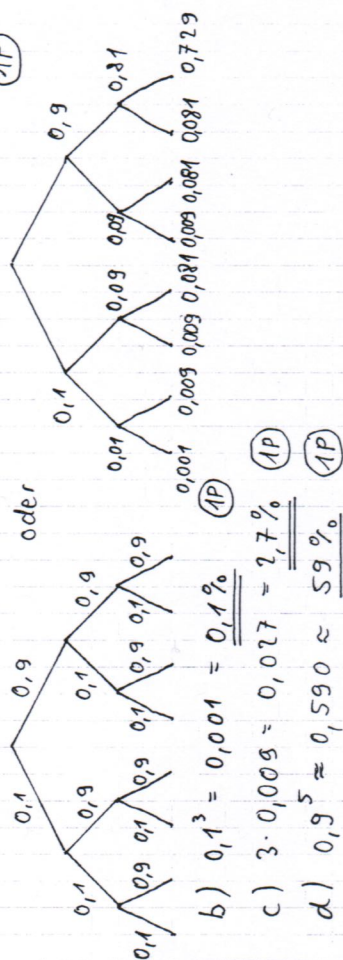 1P
oder
0,1 0,9
0,1 0,9 0,1 0,9
0,1 0,9 0,1 0,9 0,1 0,9 0,1 0,9
0,1 0,9
0,01 0,09 0,09 0,81
0,001 0,009 0,009 0,081 0,009 0,081 0,081 0,729
b) 0,1³ = 0,001 = 0,1% 1P
c) 3 · 0,009 = 0,027 = 2,7% 1P
d) 0,9⁵ ≈ 0,590 ≈ 59% 1P